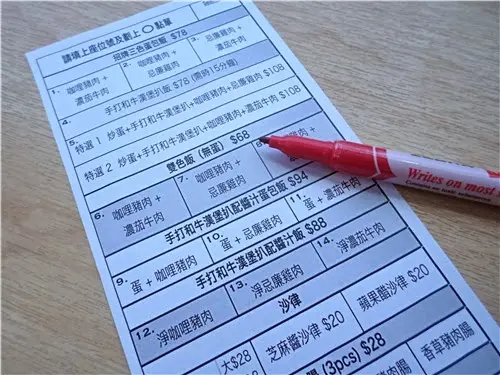 請填上座位號及劃上〇點單
招牌三色蛋包飯 $78
1. 咖哩豬肉 + 濃茄牛肉
2. 咖哩豬肉 + 忌廉雞肉
3. 忌廉雞肉 + 濃茄牛肉
4. 手打和牛漢堡扒飯 $78 (需時15分鐘)
5. 特選 1 炒蛋+手打和牛漢堡扒+咖哩豬肉+忌廉雞肉 $108
特選 2 炒蛋+手打和牛漢堡扒+咖哩豬肉+濃茄牛肉 $108
雙色飯 (無蛋) $68
6. 咖哩豬肉 + 濃茄牛肉
7. 咖哩豬肉 + 忌廉雞肉
8.
手打和牛漢堡扒配醬汁蛋包飯 $94
9. 蛋 + 咖哩豬肉
10. 蛋 + 忌廉雞肉
11. 蛋 + 濃茄牛肉
手打和牛漢堡扒配醬汁飯 $88
12. 淨咖哩豬肉
13. 淨忌廉雞肉
14. 淨濃茄牛肉
沙律
大$28
芝麻醬沙律 $20
蘋果醋沙律 $20
腸 (3pcs) $28
香草豬肉腸
Writes on most